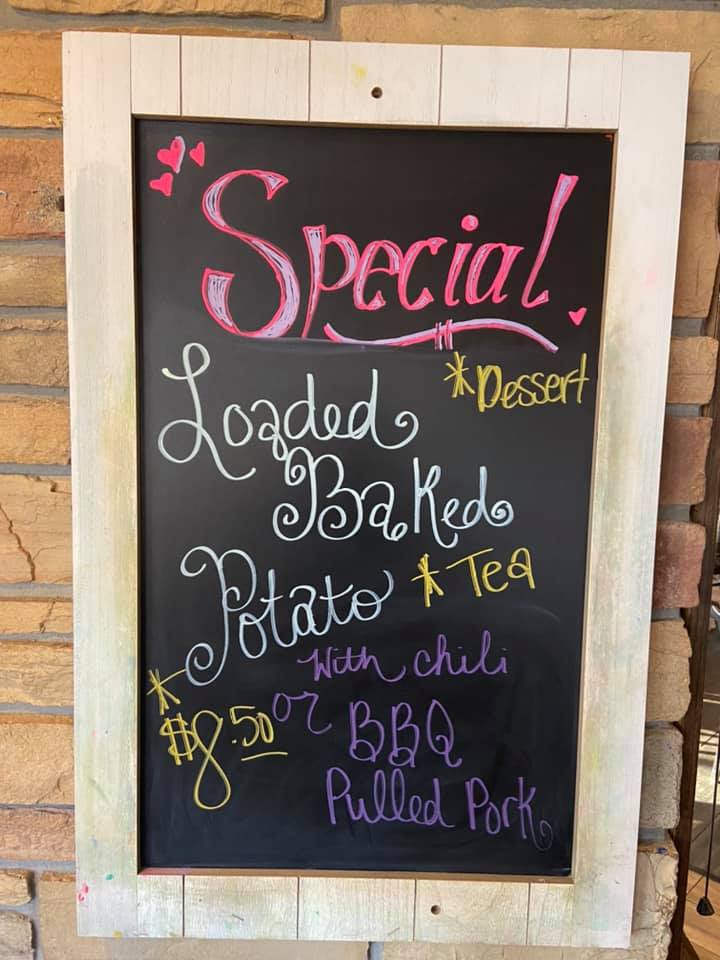 Special
*Dessert
Loaded
Baked
Potato
*Tea
With chili
or BBQ
Pulled Pork
*$8.50